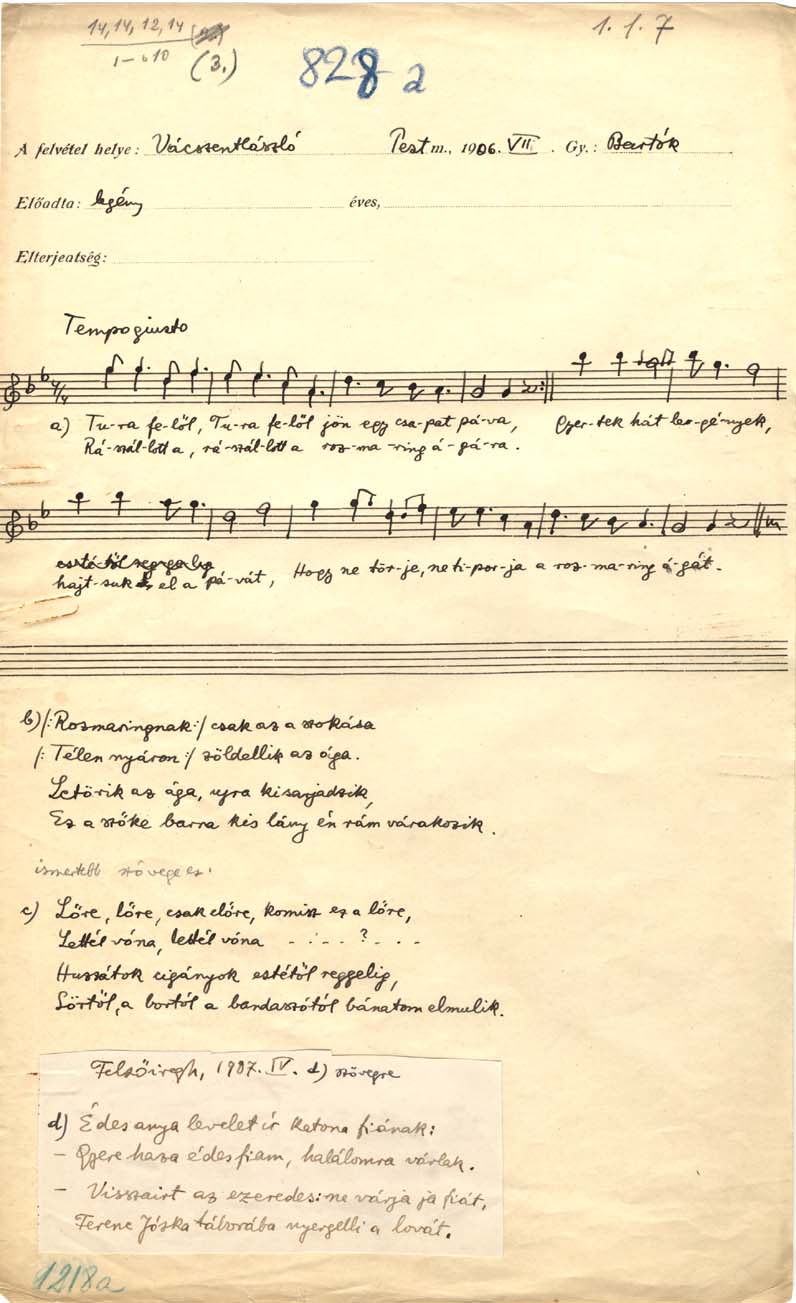 14, 14, 12, 14
1 – b10 (3.)
828 a
1. 1. 7
A felvétel helye: Vácszentlászló Pest m., 1906. VII. Gy.: Bartók
Előadta: legény éves,
Elterjedtség:
Tempo giusto
4/4
a) Tu-ra fe-löl, Tu-ra fe-löl jön egy csa-pat pá-va, Gyer-tek hát leo-gé-nyek,
Rá-szál-lott a, rá-szál-lott a roz-ma-ring á-gá-ra.
estétöl reggelig
hajt-suk el a pá-vát, Hogy ne tör-je, ne ti-por-ja a roz-ma-ring á-gát.
b) /: Rozmaringnak :/ csak az a szokása
/: Télen nyáron :/ zöldellik az ága.
Letörik az ága, ujra kisarjadzik,
Ez a szőke barna kis lány én rám várakozik.
ismertebb szövege ez:
c) Lőre, lőre, csak előre, komisz ez a lőre,
Lettél vóna, lettél vóna - . - . . ? . - . .
Huzzátok cigányok estétöl reggelig,
Sörtöl, a bortól a bandaszótól bánatom elmulik.
Felsőiregh, 1907. IV. d) szövegre
d) Édes anya levelet ír katona fiának:
– Gyere haza édes fiam, halálomra várlak.
– Visszairt az ezeredes: ne várja ja fiát,
Ferenc Jóska táborába nyergelli a lovát.
1218a